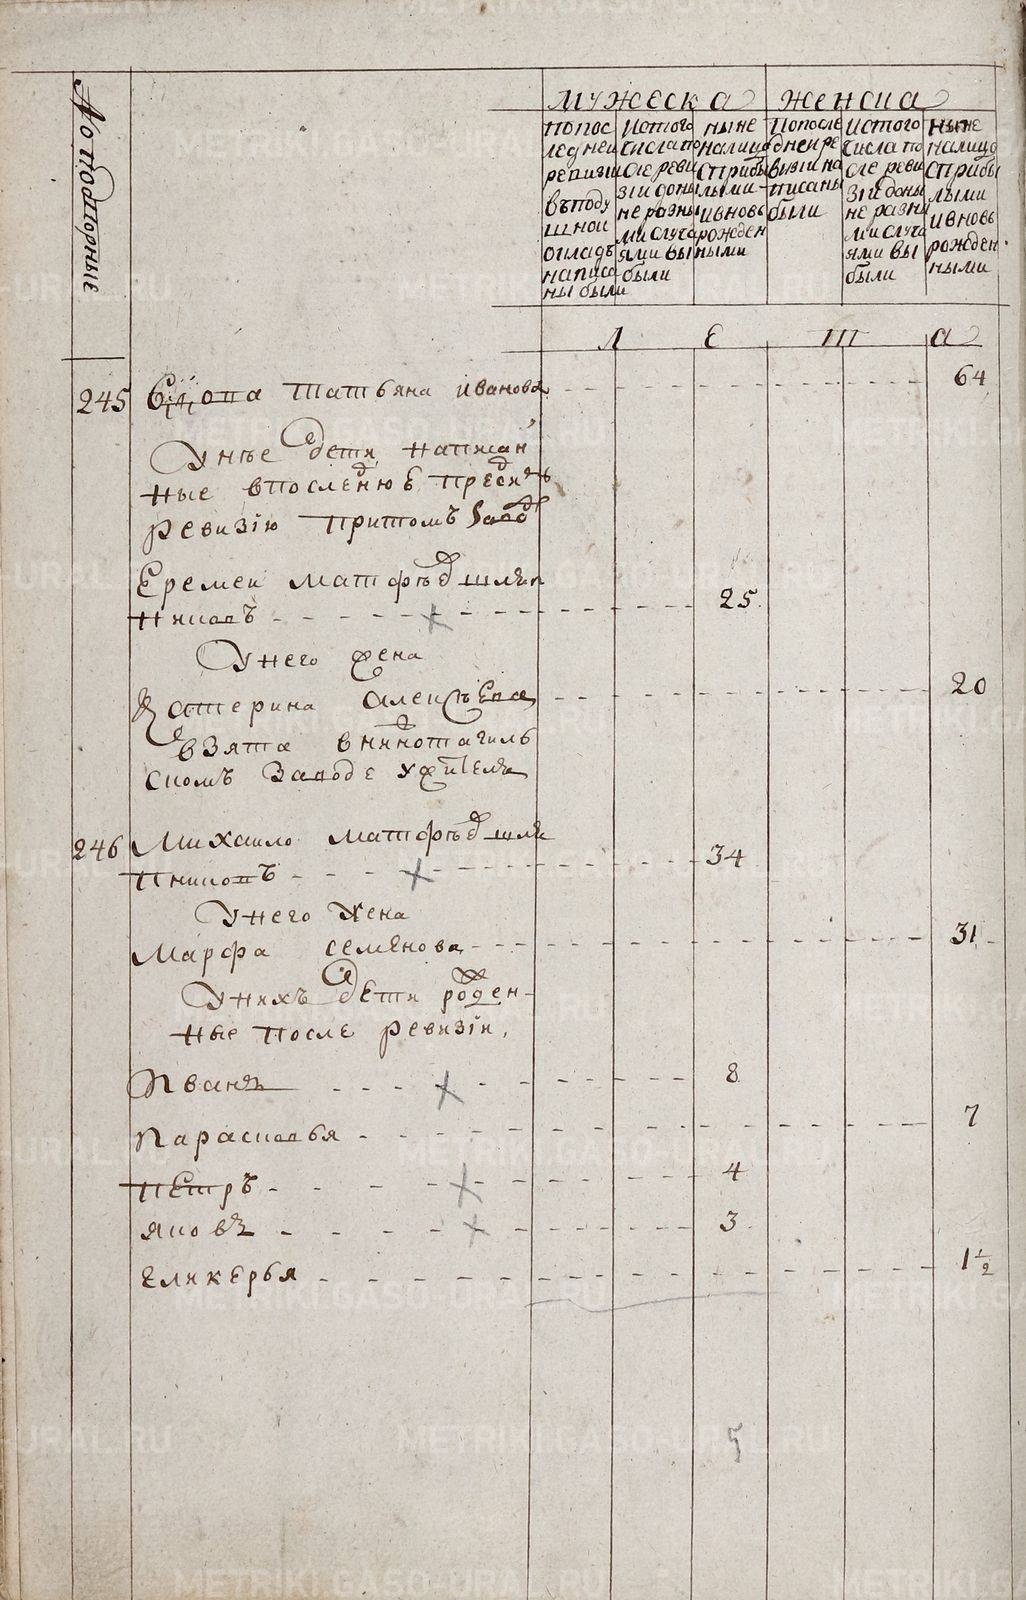 Но подворные
мужеска
женска
по пос
ледней
ревизии
въ поду
шной
окладъ
написа
ны были
Ис того
числа по
сле реви
зіи до ны
не розны
ми случа
ями вы
были
ныне
налицо
с прибы
лыми
и вновь
рожден
ными
По после
дней ре
визіи на
писаны
были
Ис того
числа по
сле реви
зіи до ны
не разны
ми случа
ями вы
были
ныне
налицо
с прибы
лыми
и вновь
рожден
ными
л е т а
245 Вдова татьяна иванова 64
У нѣе дети написан
ные в последнюю пред
ревизію при томъ завод
Еремеи матфѣ
25
У него жена
Катерина алексѣева 20
взята в нижнотагиль
скомъ Заводе у жителя
246 Михаило матфѣ
34
У него жена
Марфа семенова 31
У нихъ дети рожден-
ные после ревизіи,
Иванъ 8
Парасковья 7
Петръ 4
яковъ 3
Гликерья 1 1/2
5
METRIKI.GASO-URAL.RU